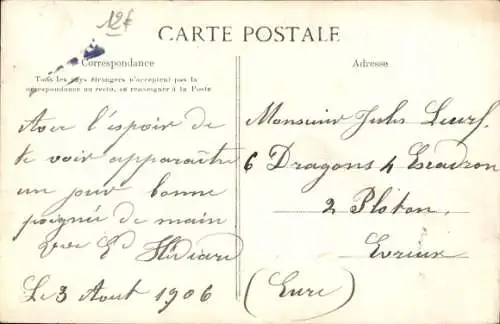 12f
CARTE POSTALE
Correspondance
Tous les pays étrangers n'acceptent pas la
correspondance au recto, se renseigner à la Poste
Avec l'espoir de
te voir apparaître
un jour bonne
poignée de main
Le 3 Aout 1906
Adresse
Monsieur Jules
6 Dragons 4 Escadron
2 Ploton,
Evreux
(Eure)